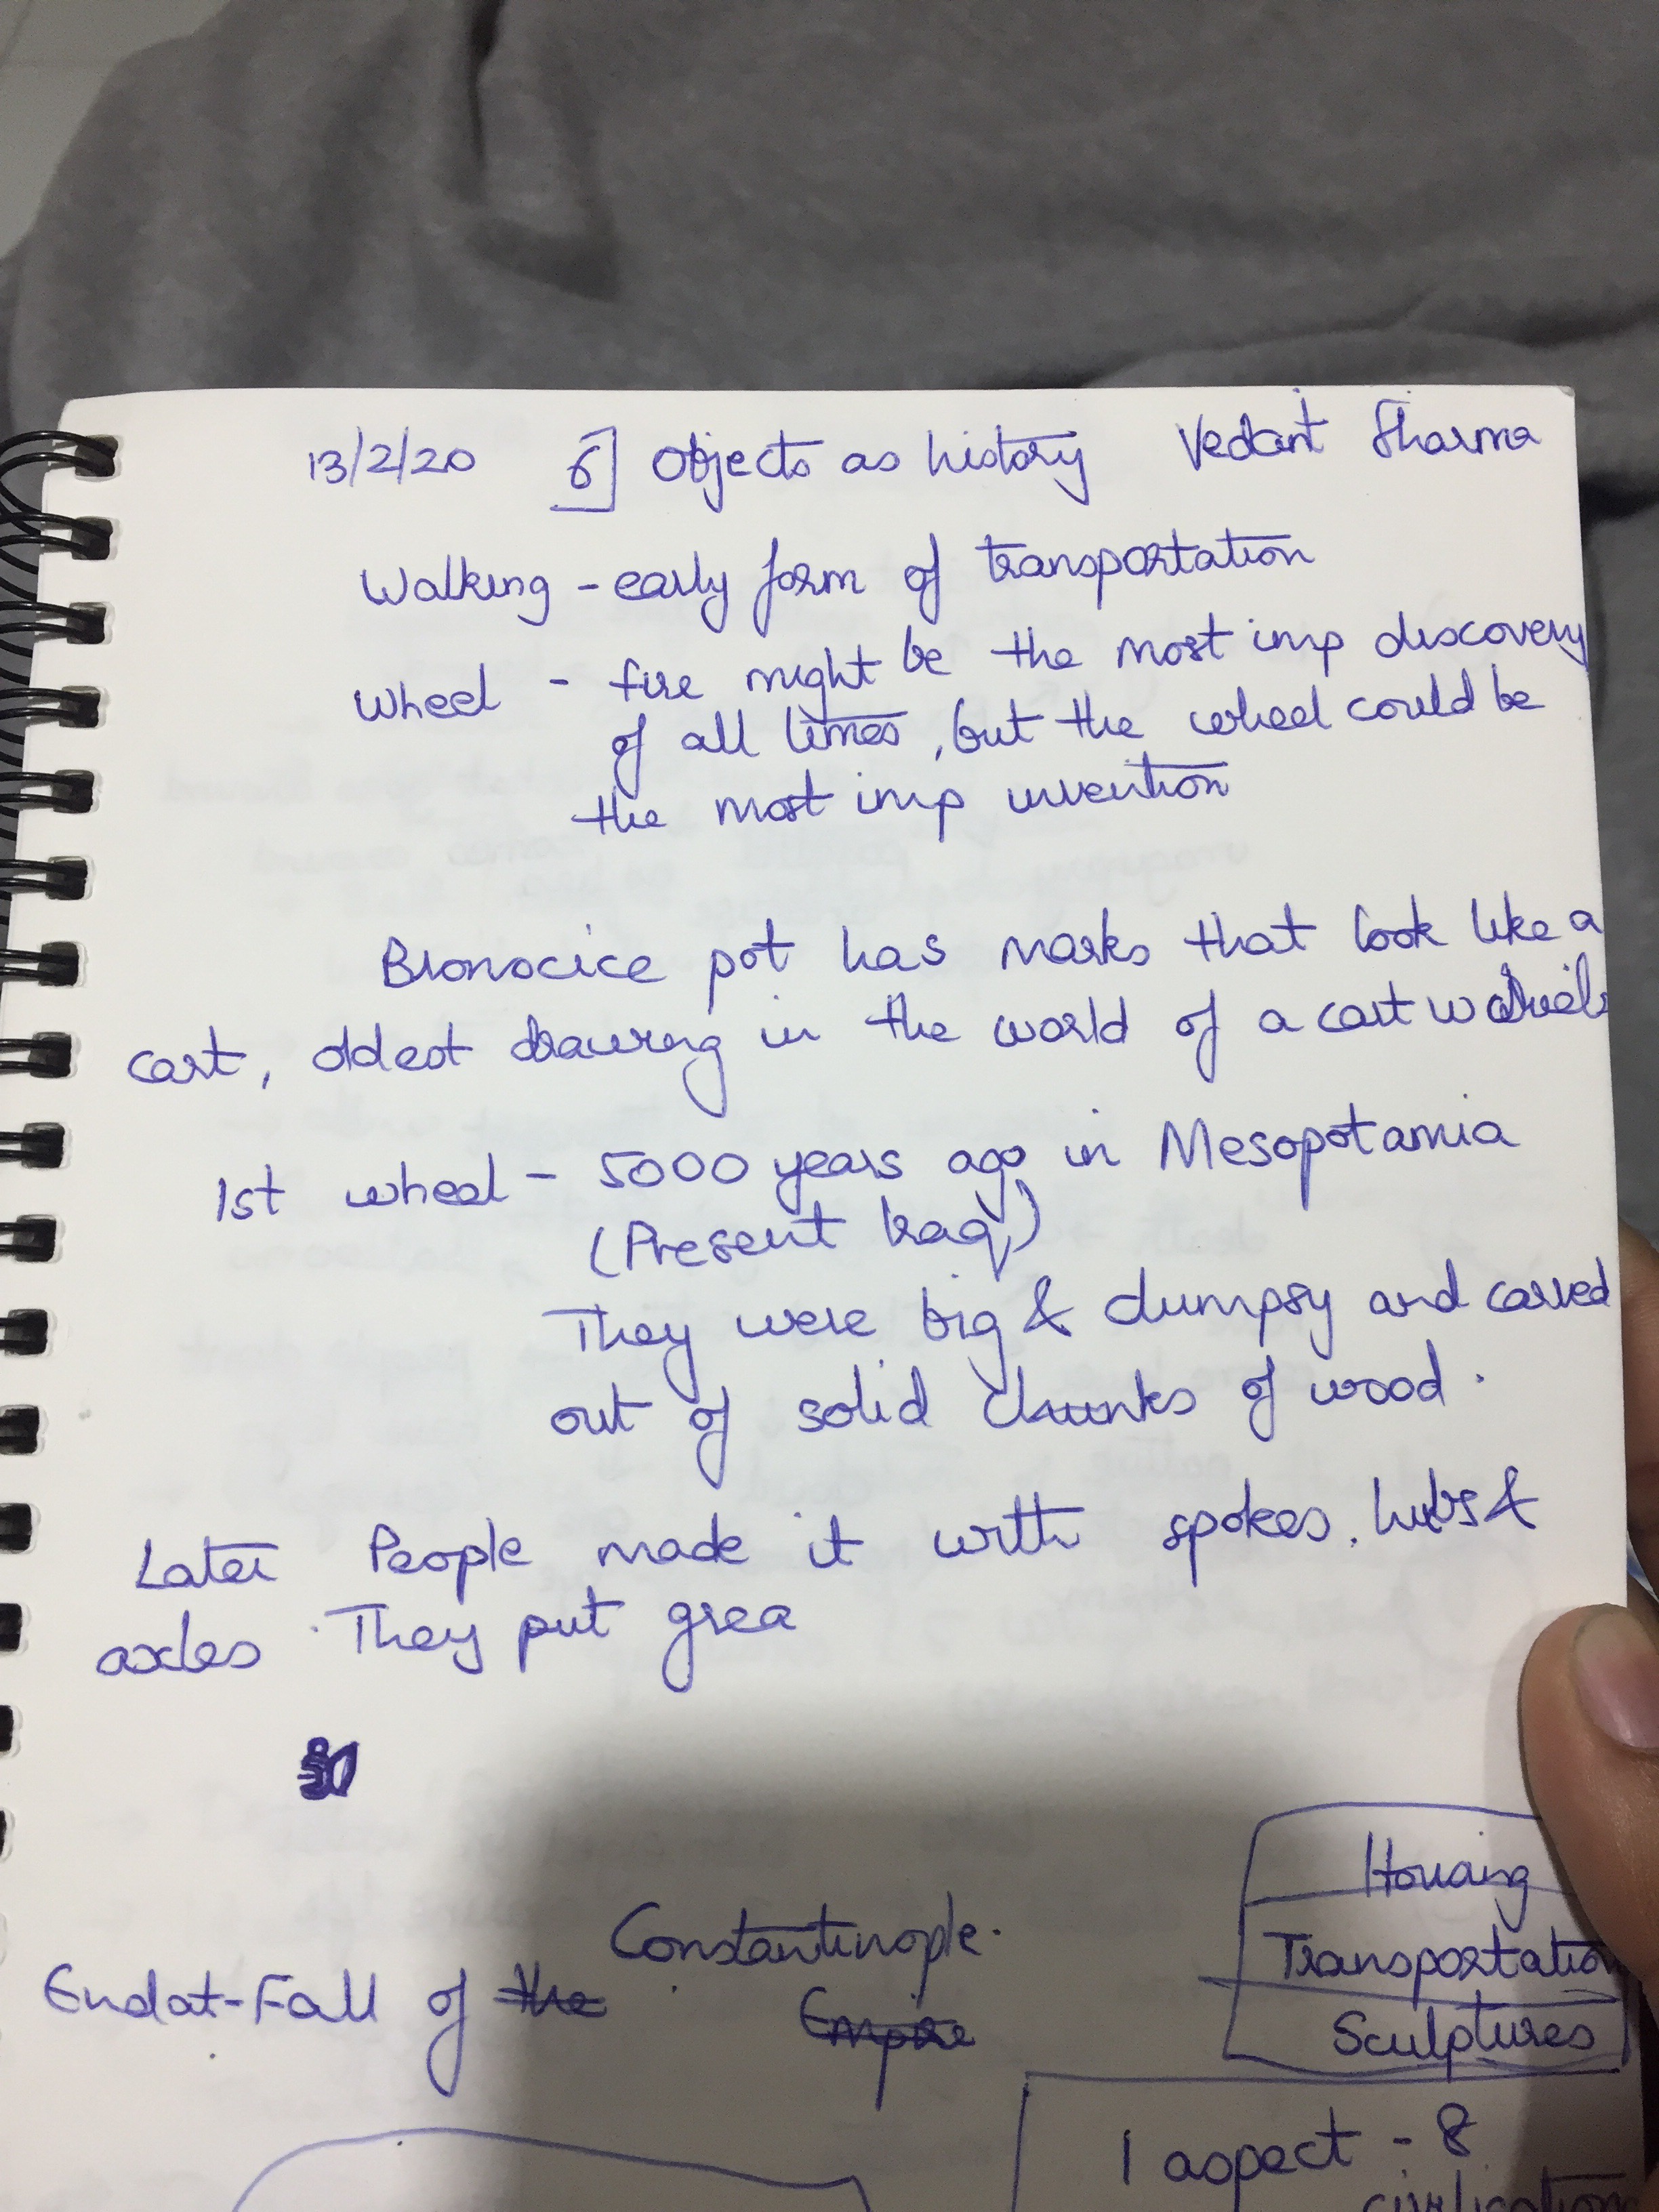 13/2/20 6] Objects as history Vedant Sharma
Walking - early form of transportation
Wheel - fire might be the most imp discovery
of all times, but the wheel could be
the most imp invention
Bronocice pot has marks that look like a
cart, oldest drawing in the world of a cart w wheels
1st wheel - 5000 years ago in Mesopotamia
(Present Iraq)
They were big & clumpsy and carved
out of solid chunks of wood.
Later People made it with spokes, hubs &
axles. They put grea
Constantinople.
End at - Fall of the Empire
Housing
Transportation
Sculptures
1 aspect - 8
civilisation